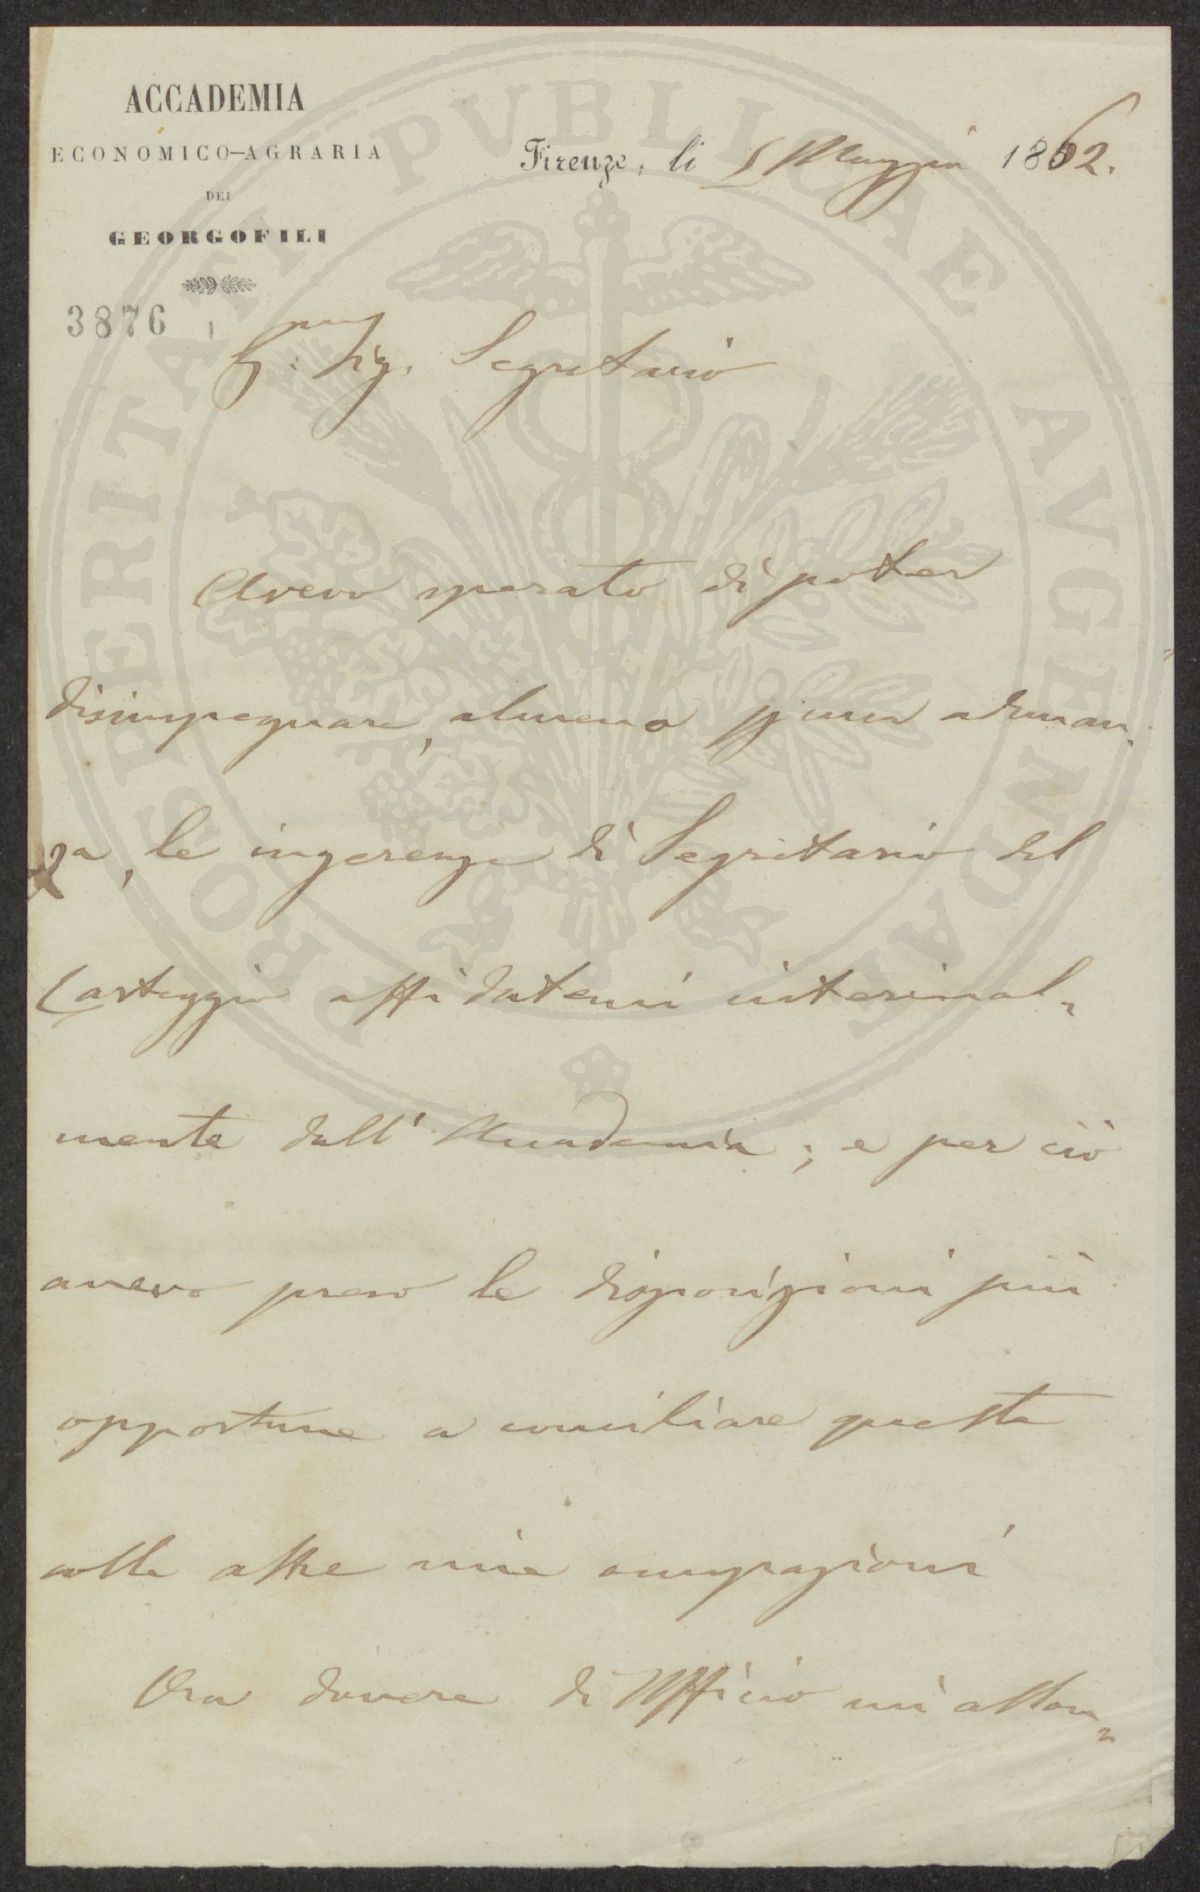 ACCADEMIA
ECONOMICO-AGRARIA
DEI
GEORGOFILI
Firenze, li 5 Maggio 1862.
3876
Sig. Segretario
Avevo sperato di poter
disimpegnare, almeno p una adunan-
za, le ingerenze di Segretario del
Carteggio affidatemi interinal-
mente dall' Accademia; e per ciò
avevo preso le disposizioni più
opportune a conciliare queste
colle altre mie occupazioni
Ora dovere di Ufficio mi allon-
PROSPERITATI PVBLICAE AVGENDAE